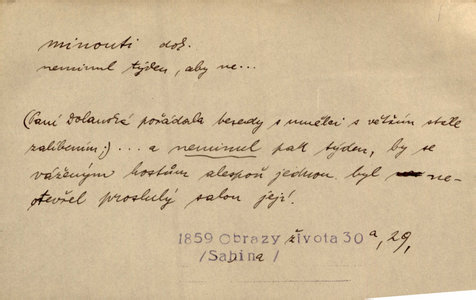 minouti dok.
neminul týden, aby ne...
(Paní Dolanská pořádala besedy s umělci s větším stále
zalíbením;) ... a neminul pak týden, by se
váženým hostům alespoň jednou byl ne-
otevřel proslulý salon její.
1859 Obrazy života 30 a, 29,
/Sabina/